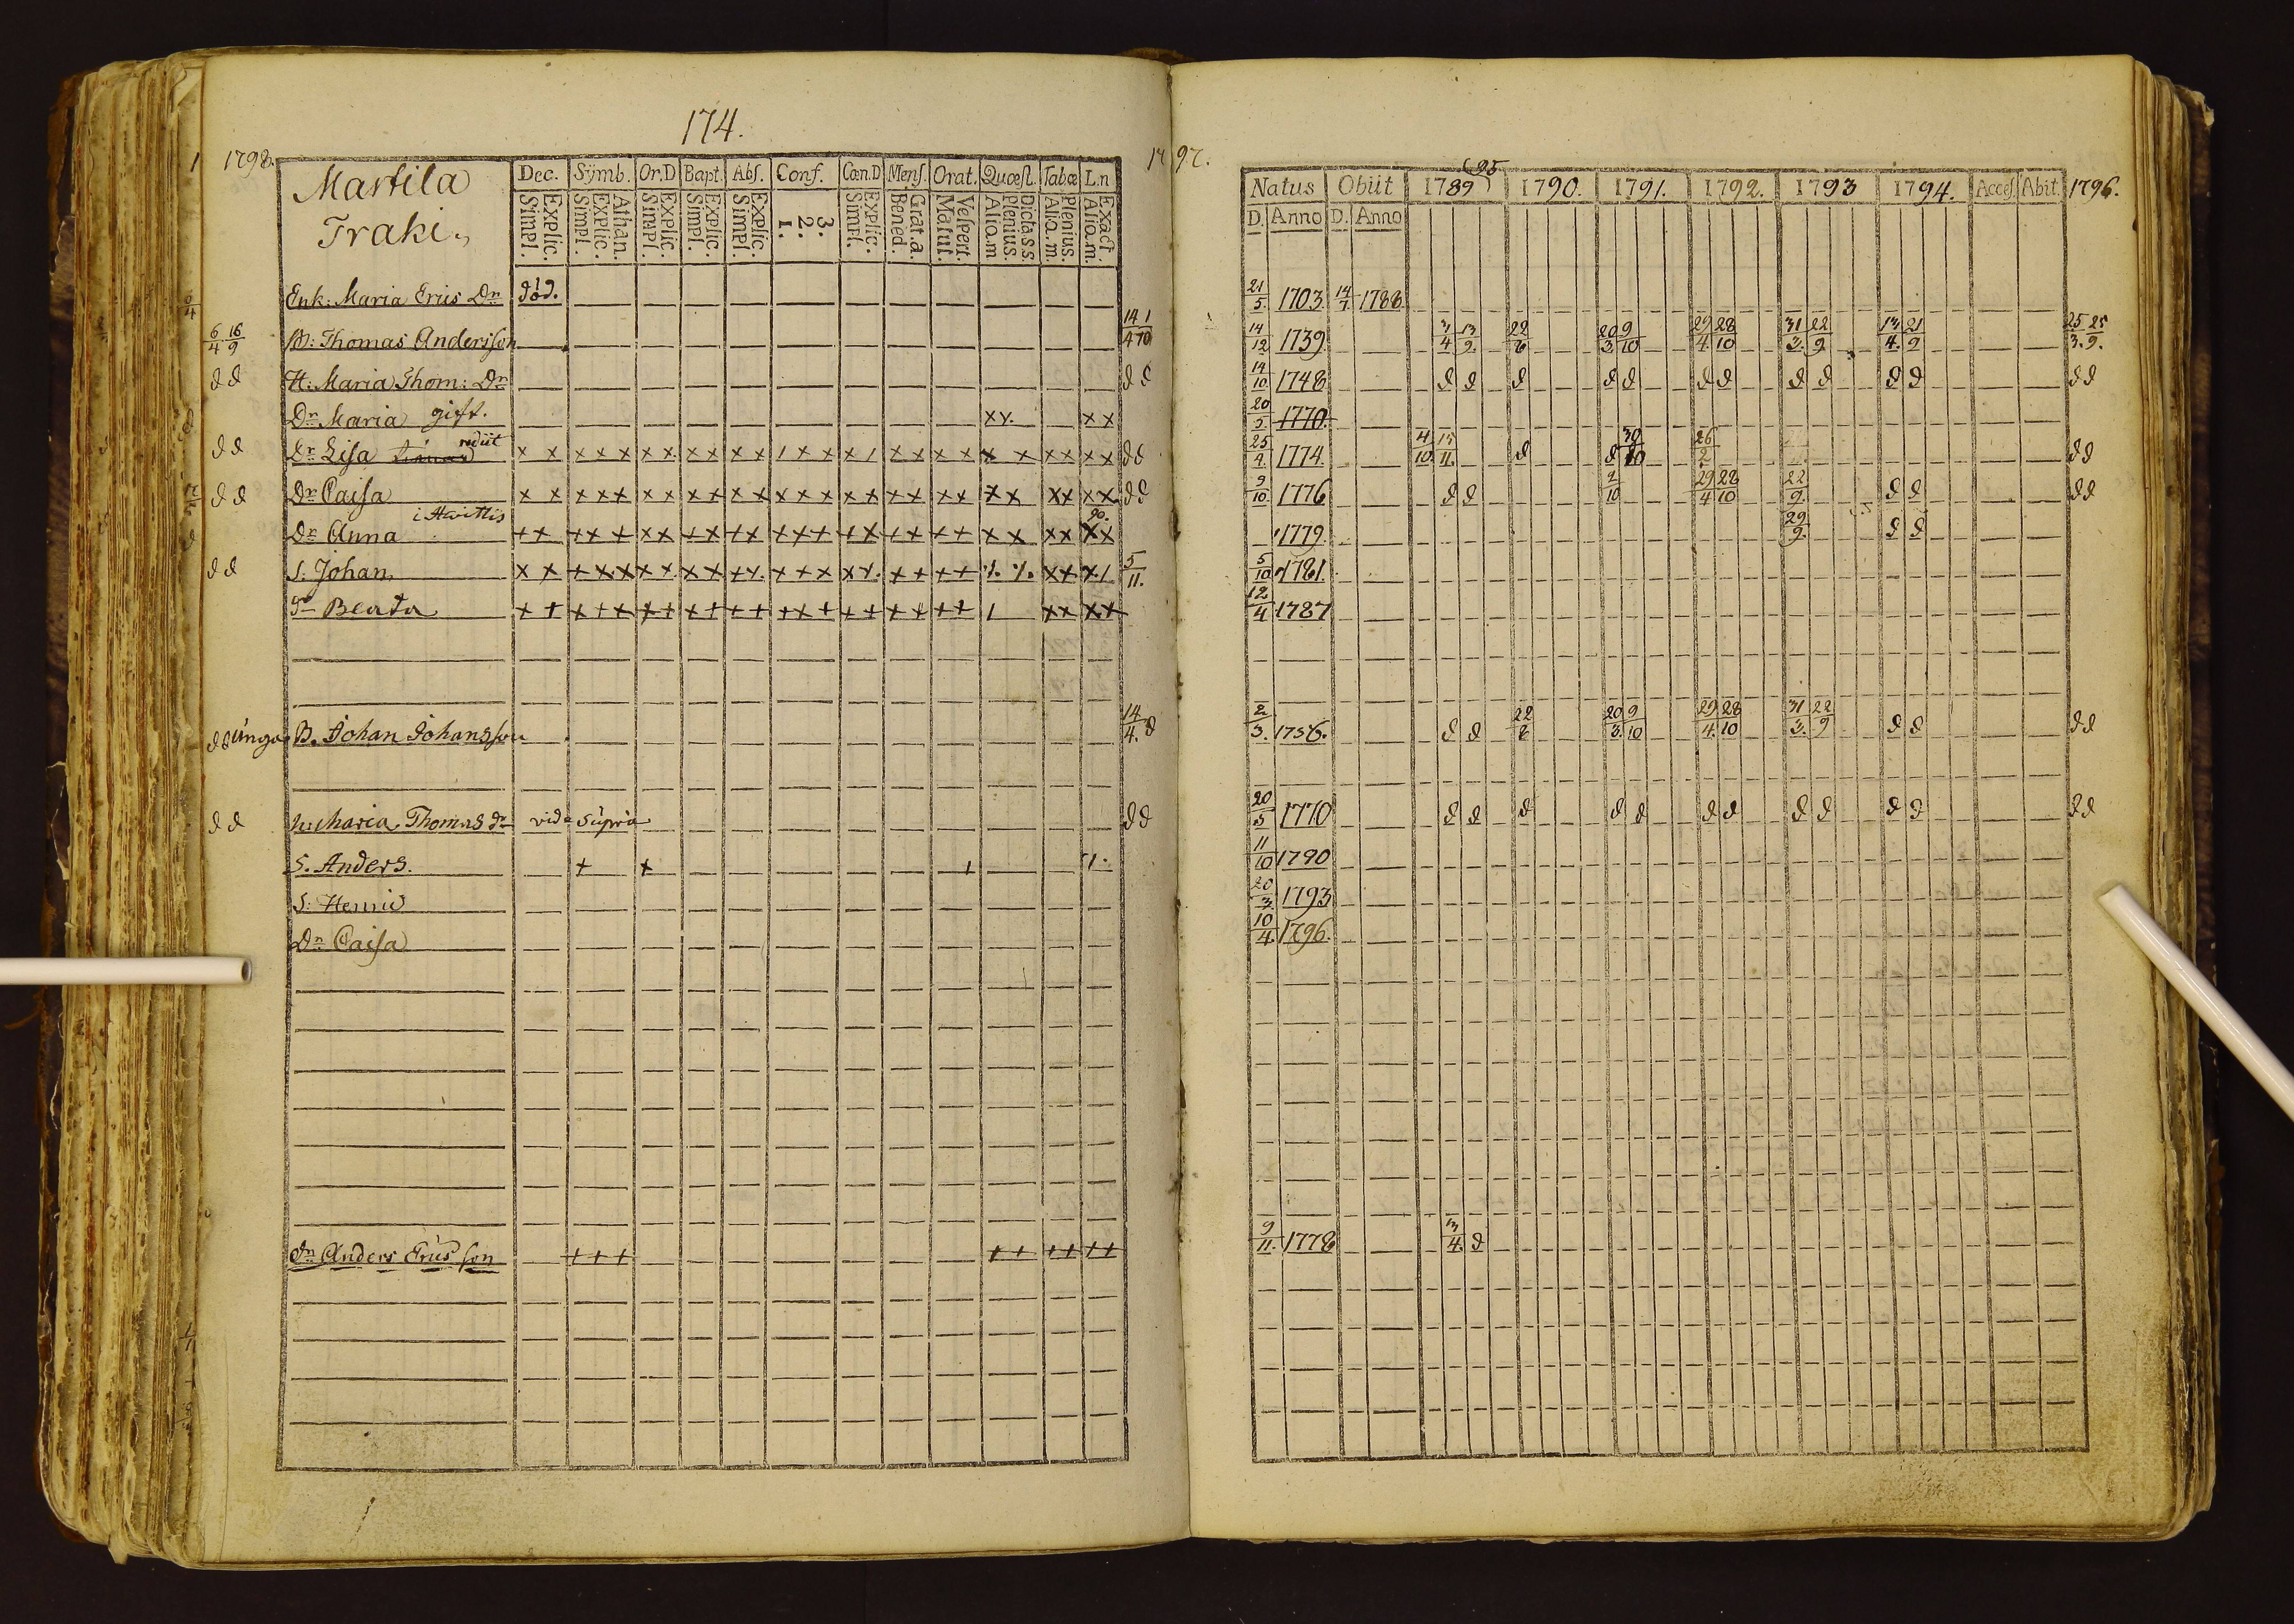 174.
1798.
Martila
Traki.
Dec. Sÿmb. Or.D Bapt. Abſ. Conf. Cœn.D Menſ. Orat. Quœſt. Tabœ L.n
Explic. Simpl. Athan. Explic. Simpl. Explic. Simpl. Explic. Simpl. Explic. Simpl. 3. 2. 1. Explic. Simpl. Grat.a. Bened. Veſpert. Matut. Dicta S.S. Plenius Alio.m Plenius. Alio.m. Exact. Alio.m.
Enk: Maria Erics Dr död.
6/4 16/9 B: Thomas Andersſon 14/4 1/10
d d H: Maria Thom: Dr d d
Dr Maria gift. x x. x x
d d Dr Liſa rediit x x x x x x x x x x x / x x x / x x x x x x x x x x d d
d d Dr Caiſa x x x x x x x x x x x x x x x x x x x x x x x x x x d d
Dr Anna i Huittis + x x x + x x x x + x x x + x x + x + + x x x x x x
d d S. Johan x x + x x x x x x + x. x + x x x. + + + + ⁒ ⁒ x x x / 5/11.
Dr Beata x + x + x x + x + + + + x + + + + + + + / x x x x
d d unga B. Johan Johansſon 14/4. d
d d h: Maria Thomas dr vide supra d d
S. Anders. + + / /.
S: Henric
Dr Caiſa
Dr Anders Ericsſon + + + + + + + + +
1797.
Natus Obiit 1789 (95 1790. 1791. 1792. 1793 1794. Acceſ. Abit. 1796.
D. Anno D. Anno
21/5. 1703. 14/7. 1788.
14/12 1739 3/4 13/9. 22/8 20/3. 9/10 29/4. 28/10 31/3. 22/9 13/4. 21/9 25/3. 25/9.
14/10 1748 d d d d d d d d d d d d d
20/5 1770.
25/4. 1774. 4/10 15/11. d d 30/10 26/2 d d
9/10 1776 d d 2/10 29/4 28/10 22/9. d d d d
1779. 29/9. d d
5/10 1781.
12/4 1787
2/3. 1756. d d 22/8 20/3. 9/10 29/4. 28/10 31/3. 22/9 d d d d
20/5 1770 d d d d d d d d d d d d d
11/10 1790
20/3 1793
10/4 1796.
9/11. 1778 13/4. d